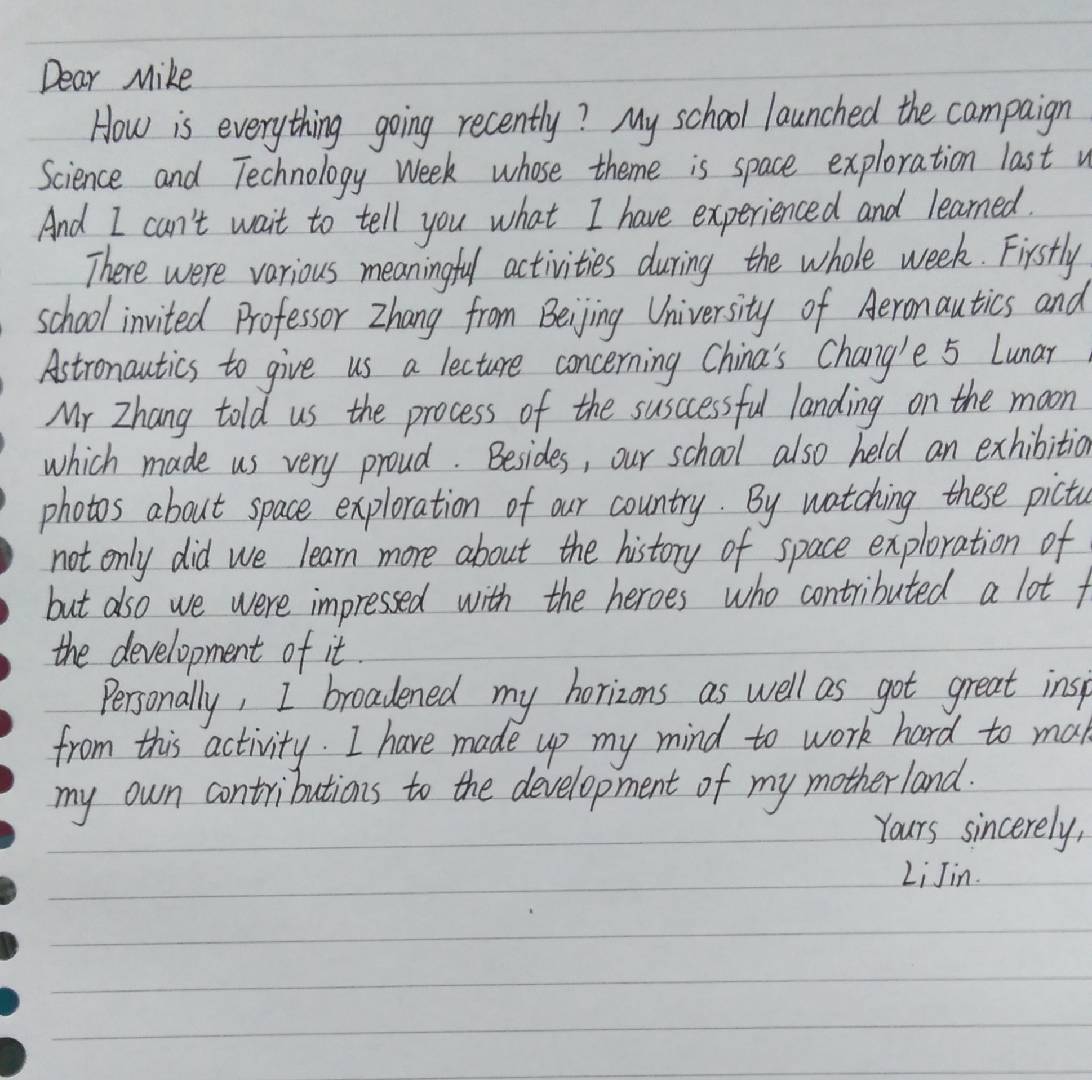 Dear Mike
How is everything going recently? My school launched the campaign
Science and Technology Week whose theme is space exploration last
And I can't wait to tell you what I have experienced and learned.
There were various meaningful activities during the whole week. Firstly
school invited Professor Zhang from Beijing University of Aeronautics and
Astronautics to give us a lecture concerning China's Chang'e 5 Lunar
Mr Zhang told us the process of the susccessful landing on the moon
which made us very proud. Besides, our school also held an exhibition
photos about space exploration of our country. By watching these
not only did we learn more about the history of space exploration of
but also we were impressed with the heroes who contributed a lot
the development of it.
Personally, I broadened my horizons as well as got great
from this activity. I have made up my mind to work hard to
my own contributions to the development of my motherland.
Yours sincerely,
Li Jin.